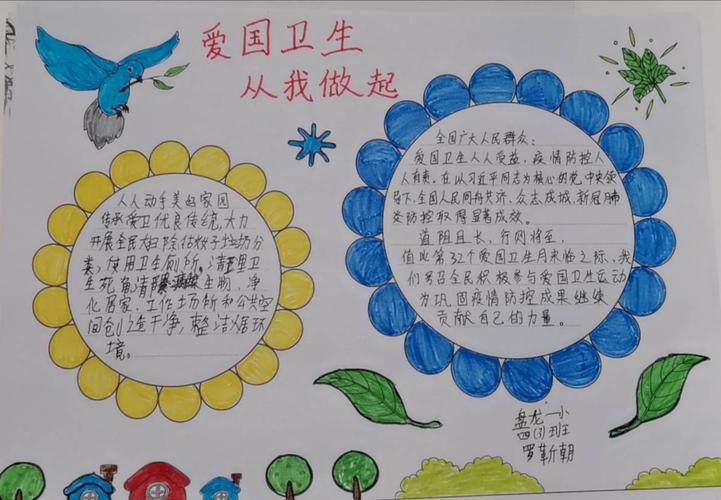 爱国卫生
从我做起
人人动手美的家园
传承爱卫优良传统，大力
开展全民扫除
类，使用卫生厕所。清理卫
生死角清
生物，净
化居家、工作场所和公共空
间创造干净，整洁
环
境。
全国广大人民群众：
爱国卫生人人受益，疫情防控人
人有责，在以习近平同志为核心的党中央领
导下，全国人民同舟共济、众志成城，新冠肺
炎防控取得显著成效。
道阻且长，行则将至，
值此第32个爱国卫生月来临之际，我
们号召全民积极参与爱国卫生运动
为巩固疫情防控成果继续
贡献自己的力量。
盘龙一小
四(3)班
罗靳朝